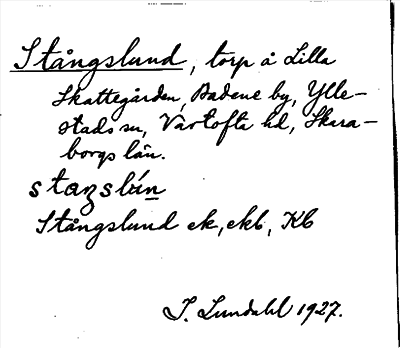 Stångslund, torp å Lilla
Skattegården, Badene by, Ylle-
stads sn, Vartofta hd, Skara-
borgs län.
staŋslún
Stångslund ek, ekb, Kb
I. Lundahl 1927.